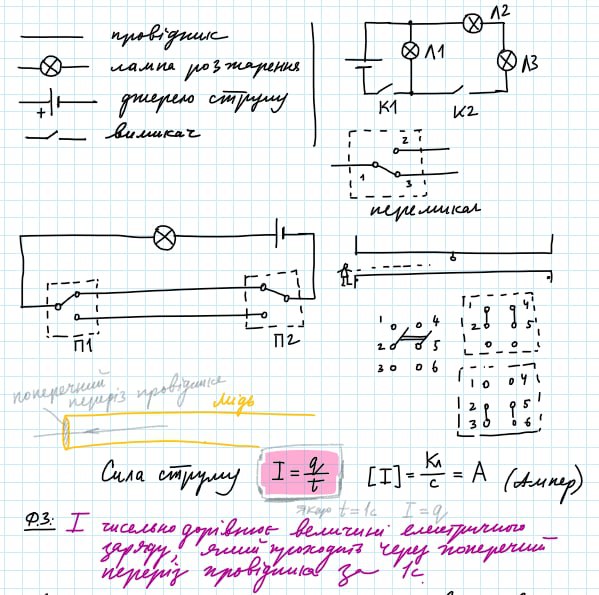 провідник
лампа розжарення
+ джерело струму
вимикач
Л2
Л1
Л3
К1
К2
2
1
3
перемикач
П1
П2
1 4
2 5
3 6
4
2 5
1 4
2 5
3 6
поперечний
переріз провідника
мідь
Сила струму I = q/t [I] = Кл/с = А (Ампер)
якщо t = 1с I = q
Ф.З.: I чисельно дорівнює величині електричного
заряду, який проходить через поперечний
переріз провідника за 1с.